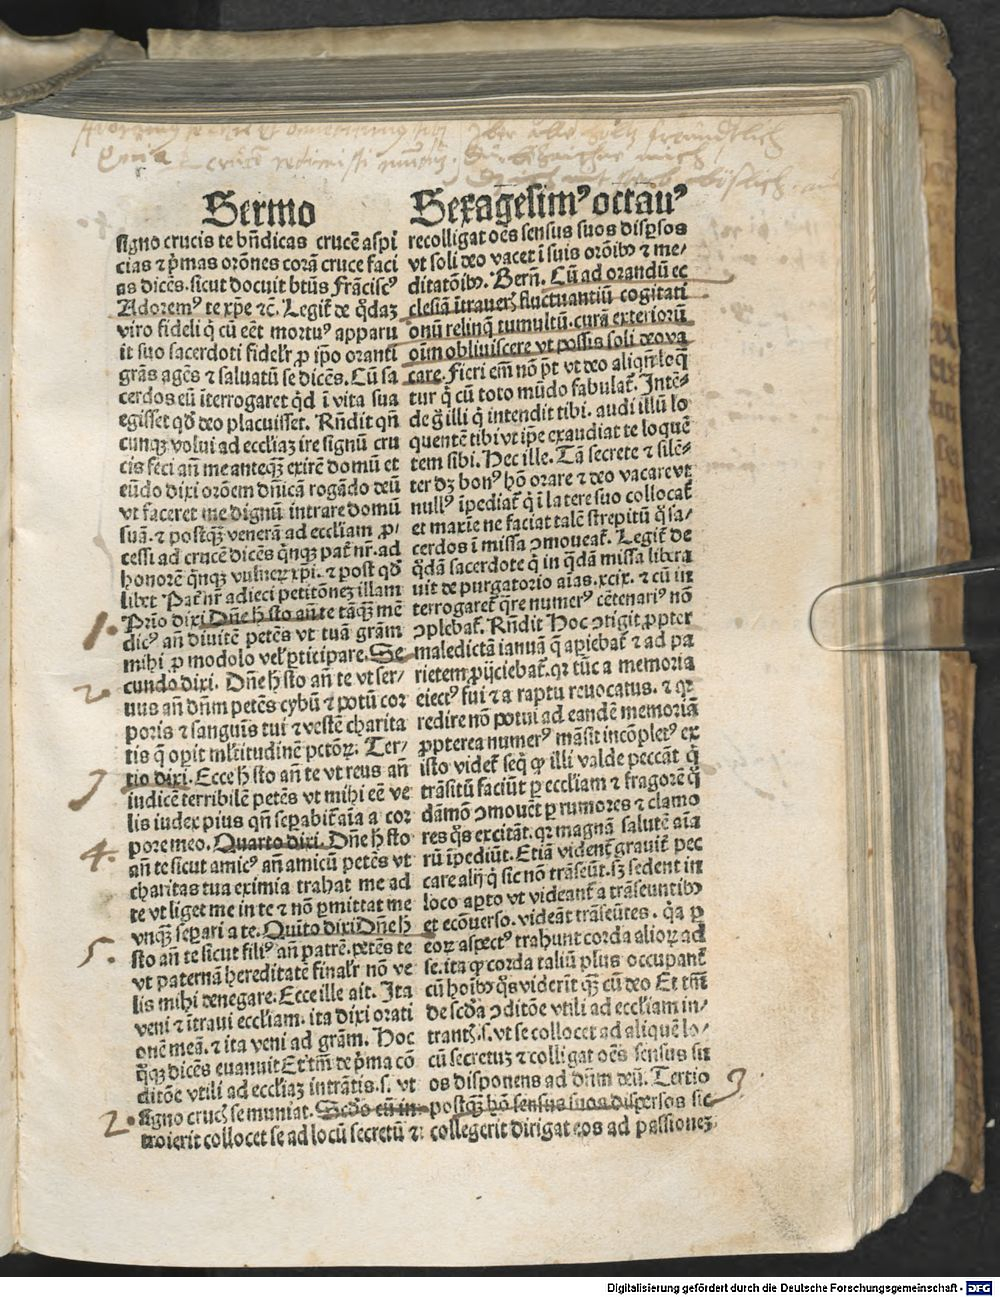 Sermo
signo crucis te bn̄dicas crucē aspi
cias ⁊ p̄mas orōnes corā cruce faci
as dicēs. sicut docuit btūs Frācisc⁹
Adorem⁹ te xp̄e ⁊c̄. Legit᷑ de q̄daꝫ
viro fideli q̇ cū eēt mortu⁹ apparu
it suo sacerdoti fidelr̄ ꝓ ip̄o oranti
grās agēs ⁊ saluatū se dicēs. Cū sa
cerdos eū iterrogaret q̇d ī vita sua
egisset qd̄ deo placuisset. Rn̄dit qn̄
cunqꝫ volui ad eccl̄iaꝫ ire signū cru
cis feci an̄ me anteqꝫ exirē domū et
eūdo dixi orōem dn̄icā rogādo deū
vt faceret me dignū intrare domū
suā. ⁊ postqꝫ venerā ad eccl̄iam ꝓ
cessi ad crucē dicēs q̇nqꝫ pat̄ nr̄. ad
honorē q̇nqꝫ vulneꝝ xp̄i. ⁊ post qd̄
libet Pat̄ nr̄ adieci petitōneꝫ illam
1. Prīo dixi Dn̄e h̄ sto an̄ te tāqꝫ mē
dic⁹ an̄ diuitē petēs vt tuā grām
mihi ꝓ modolo vel̄ ꝑticipare. Se
2 cundo dixi. Dn̄e h̄ sto an̄ te vt ser/
uus an̄ dn̄m petēs cybū ⁊ potū cor
poris ⁊ sanguīs tui ⁊ vestē charita
tis q̄ opit ml̄titudinē pctōꝝ. Ter/
3 tio dixi. Ecce h̄ sto an̄ te vt reus an̄
iudicē terribilē petēs vt mihi eē ve
lis iudex pius qn̄ sepabit᷑ aīa a cor
pore meo. Quarto dixi. Dn̄e h̄ sto
4. an̄ te sicut amic⁹ an̄ amicū petēs vt
charitas tua eximia trahat me ad
te vt liget me in te ⁊ nō ꝑmittat me
vnqꝫ separi a te. Quīto dixi Dn̄e h̄
5. sto an̄ te sicut fili⁹ an̄ patrē. petēs te
vt paternā hereditatē finalr̄ nō ve
lis mihi denegare. Ecce ille ait. Ita
veni ⁊ ītraui eccl̄iam. ita dixi orati
onē meā. ⁊ ita veni ad grām. Hoc
q̇qꝫ dicēs euanuit Et tm̄ de p̄ma cō
ditōe vtili ad eccl̄iaꝫ intrātis. s. vt
signo cruc̄ se muniat. Scd̄o cū in
2. troierit collocet se ad locū secretū ⁊
Sexagesim⁹ octau⁹
recolligat oēs sensus suos disꝑsos
vt soli deo vacet ī suis orōibꝰ ⁊ me/
ditatōibꝰ. Bern̄. Cū ad orandū ec
clesiā ītraueꝝ fluctuantiū cogitati
onū relinq̄ tumultū. curā exterioꝝ
oīm obliuiscere vt possis soli deo va
care. Fieri em̄ nō pt̄ vt deo aliqn̄ loq̄
tur q̇ cū toto mūdo fabulat᷑. Intē/
de ḡ illi q̇ intendit tibi. audi illū lo
quentē tibi vt ip̄e exaudiat te loquē
tem sibi. Hec ille. Tā secrete ⁊ silē/
ter dꝫ bon⁹ hō orare ⁊ deo vacare vt
null⁹ īpediat᷑ q̇ ī latere suo collocat᷑
et maxīe ne faciat talē strepitū q̇ sa/
cerdos ī missa ꝯmoueat᷑. Legit᷑ de
q̄dā sacerdote q̇ in q̄dā missa libera
uit de purgatorio aīas. xcix. ⁊ cū in
terrogaret᷑ q̄re numer⁹ cētenari⁹ nō
ꝯplebat᷑. Rn̄dit Hoc ꝯtigit ꝓpter
maledictā ianuā q̄ apiebat᷑ ⁊ ad pa
rietem ꝓijciebat᷑. qr tūc a memoria
eiect⁹ fui ⁊ a raptu reuocatus. ⁊ qr
redire nō potui ad eandē memoriā
ꝓpterea numer⁹ māsit incōplet⁹ ex
isto videt᷑ seq̄ ꝙ illi valde peccāt q̇
trāsitū faciūt ꝑ eccl̄iam ⁊ fragorē q̄
dāmō ꝯmouēt ꝑ rumores ⁊ clamo
res q̇s excitāt. qr magnā salutē aīa
rū īpediūt. Etiā vident᷑ grauit᷑ pec
care alij q̇ sic nō trāseūt. sꝫ sedent in
loco apto vt videant᷑ a trāseuntibꝰ
et ecōuerso. videāt trāseūtes. q̇a ꝑ
eoꝝ aspect⁹ trahunt corda alioꝝ ad
se. ita ꝙ corda taliū plus occupant᷑
cū hoībꝰ q̇s viderit qꝫ cū deo Et tm̄
de scd̄a ꝯditōe vtili ad eccl̄iam in/
trantꝭ. s. vt se collocet ad aliquē lo/
cū secretuꝫ ⁊ colligat oēs sensus su
os disponens ad dn̄m deū. Tertio
postqꝫ hō sensus suos disꝑsos sic 3
collegerit dirigat eos ad passioneꝫ
Digitalisierung gefördert durch die Deutsche Forschungsgemeinschaft - DFG